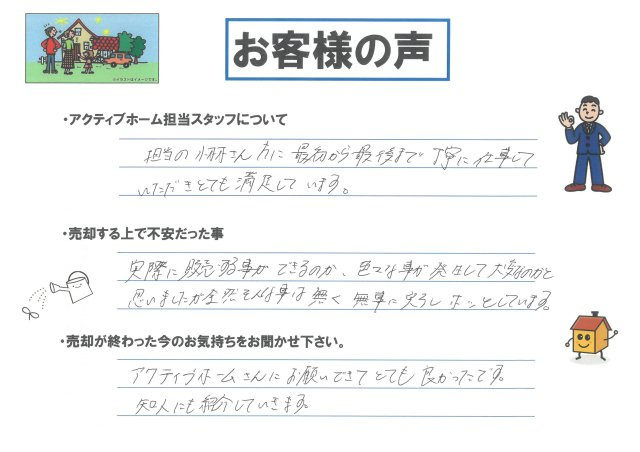 ※イラストはイメージです。
お客様の声
・アクティブホーム担当スタッフについて
担当の さん方に 最初から最後まで 丁寧に仕事して
いただきとても満足しています。
・売却する上で不安だった事
実際に販売する事ができるのか、色々な事が発生して大変なのかと
思いましたが全然そんな事は無く 無事に売ろし ホッとしています。
・売却が終わった今のお気持ちをお聞かせ下さい。
アクティブホームさんにお願いできてとても良かったです。
知人にも紹介していきます。